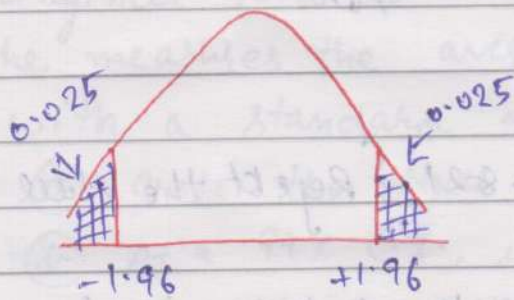 0.025
0.025
-1.96
+1.96